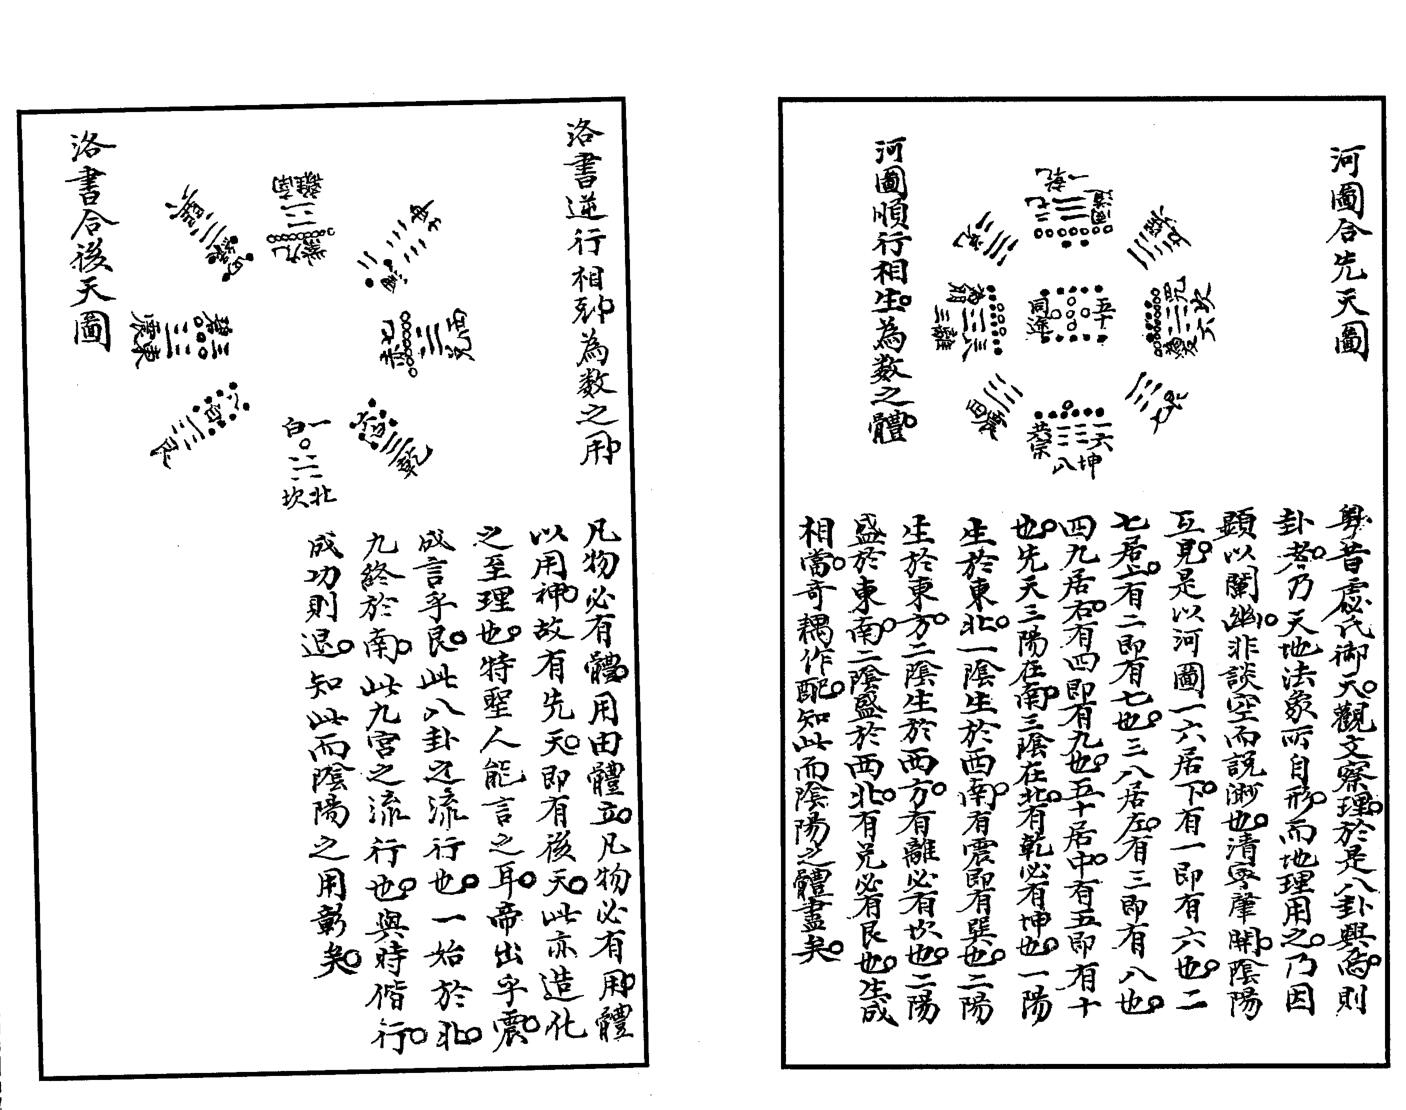 河圖合先天圖
河圖順行相生為數之體
一乾
七二
兌二
坎六
五十
同途
三八
三離
一六
共宗
坤八
粵昔虙氏御天觀文察理於是八卦興焉則
卦者乃天地法象所自形而地理用之乃因
顯以闡幽非談空而說渺也清寧肇開陰陽
互見是以河圖一六居下有一即有六也二
七居上有二即有七也三八居左有三即有八也
四九居右有四即有九也五十居中有五即有十
也先天三陽在南三陰在北有乾必有坤也一陽
生於東北一陰生於西南有震即有巽也二陽
生於東方二陰生於西方有離必有坎也二陽
盛於東南二陰盛於西北有兌必有艮也生成
相當奇耦作配知此而陰陽之體盡矣
洛書逆行相尅為数之用
洛書合後天圖
離南
九紫
西兌
七赤
乾
北坎
一白
八白
艮
三碧
東震
凡物必有體用由體立凡物必有用體
以用神故有先天即有後天此亦造化
之至理也特聖人能言之耳帝出乎震
成言乎艮此八卦之流行也一始於北
九終於南此九宮之流行也與時偕行
成功則退知此而陰陽之用彰矣